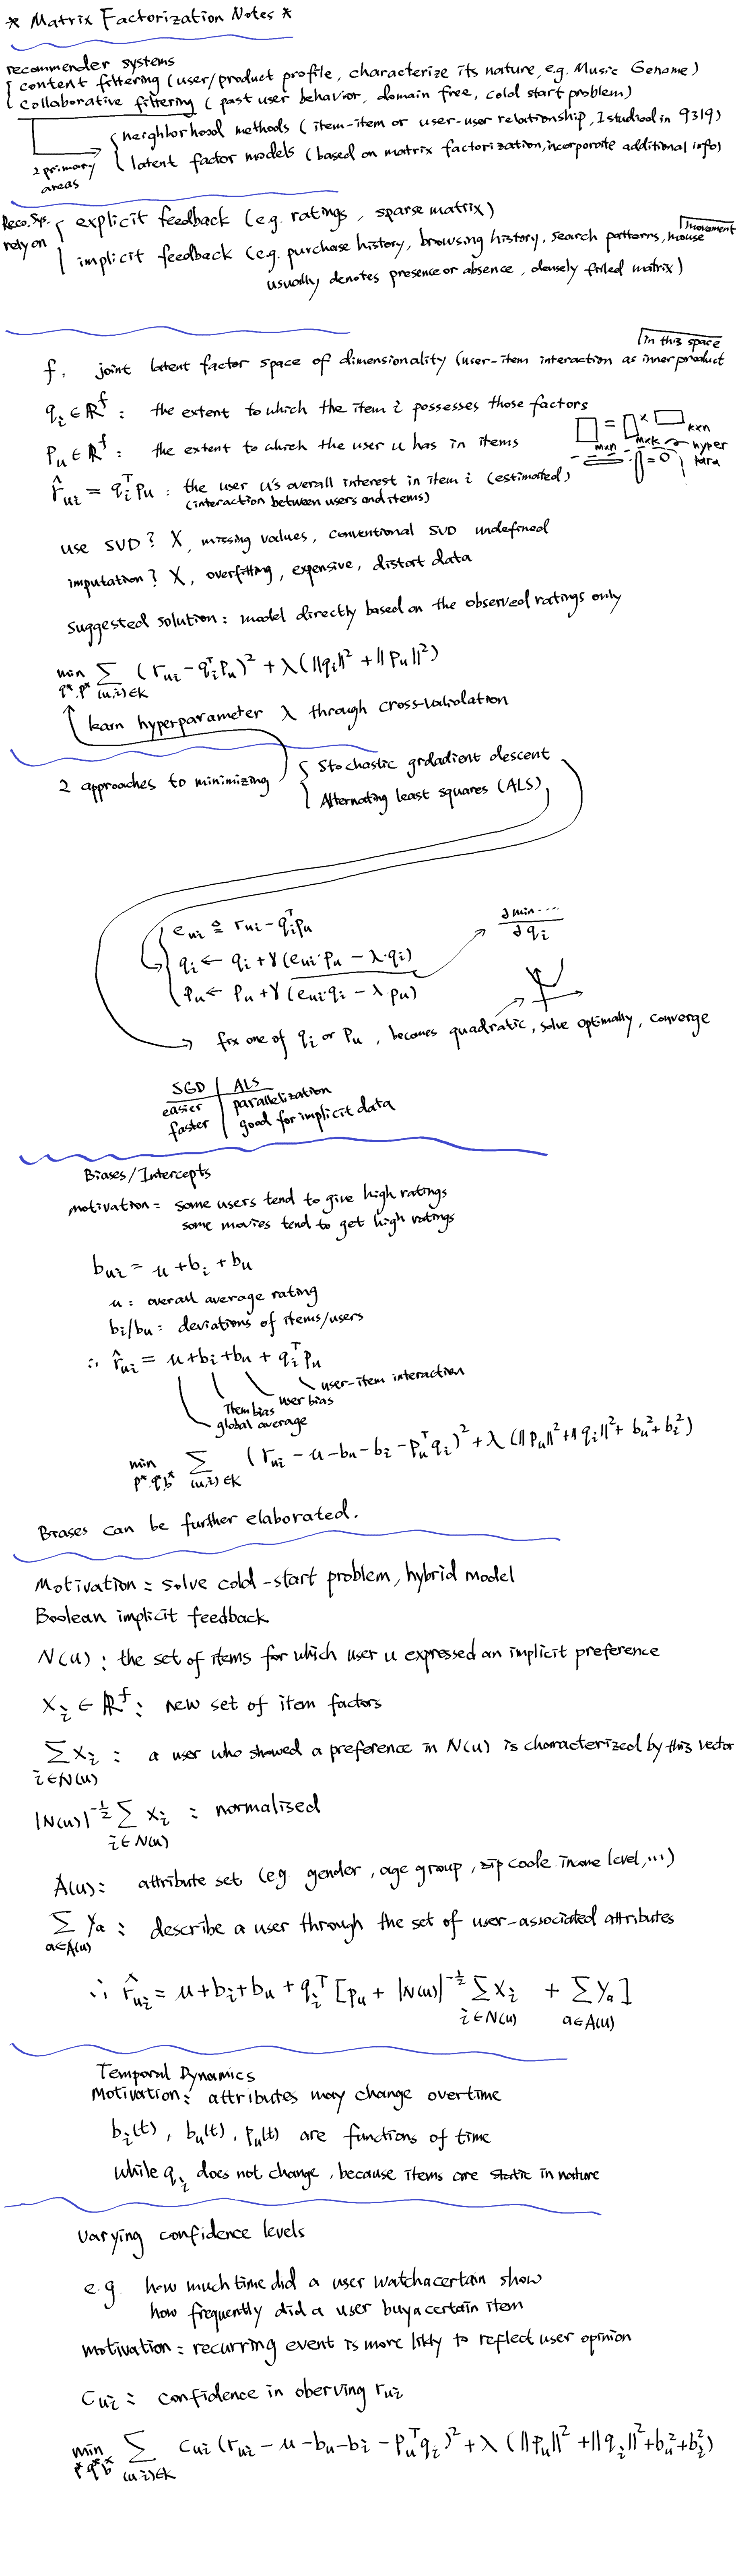 * Matrix Factorization Notes *
recommender systems
content filtering (user/product profile, characterize its nature, e.g. Music Genome)
collaborative filtering (past user behavior, domain free, cold start problem)
2 primary areas
neighborhood methods (item-item or user-user relationship, I studied in 9319)
latent factor models (based on matrix factorization, incorporate additional info)
Reco. Sys. rely on
explicit feedback (e.g. ratings, sparse matrix)
implicit feedback (e.g. purchase history, browsing history, search patterns, mouse movement
usually denotes presence or absence, densely filled matrix)
f: joint latent factor space of dimensionality (user-item interaction as inner product in this space
qᵢ ∈ ℝᶠ: the extent to which the item i possesses those factors
pᵤ ∈ ℝᶠ: the extent to which the user u has in items
m×n = m×k × k×n
hyper para
= 0
r̂ᵤᵢ = qᵢᵀpᵤ: the user u's overall interest in item i (estimated)
(interaction between users and items)
use SVD? X, missing values, conventional SVD undefined
imputation? X, overfitting, expensive, distort data
suggested solution: model directly based on the observed ratings only
min q*.p* Σ (u,i)∈K (rᵤᵢ - qᵢᵀpᵤ)² + λ(||qᵢ||² + ||pᵤ||²)
learn hyperparameter λ through cross-validation
2 approaches to minimizing
Stochastic grdadient descent
Alternating least squares (ALS)
eᵤᵢ ≙ rᵤᵢ - qᵢᵀpᵤ
qᵢ ← qᵢ + γ(eᵤᵢ·pᵤ - λ·qᵢ)
pᵤ ← pᵤ + γ(eᵤᵢ·qᵢ - λ·pᵤ)
∂min.... / ∂qᵢ
fix one of qᵢ or pᵤ, becomes quadratic, solve optimally, converge
SGD | ALS
easier | parallelization
faster | good for implicit data
Biases/Intercepts
motivation: some users tend to give high ratings
some movies tend to get high ratings
bᵤᵢ = μ + bᵢ + bᵤ
μ: overall average rating
bᵢ/bᵤ: deviations of items/users
∴ r̂ᵤᵢ = μ + bᵢ + bᵤ + qᵢᵀpᵤ
user-item interaction
user bias
Item bias
global average
min p*.q*.b* Σ (u,i)∈K (rᵤᵢ - μ - bᵤ - bᵢ - pᵤᵀqᵢ)² + λ(||pᵤ||² + ||qᵢ||² + bᵤ² + bᵢ²)
Biases can be further elaborated.
Motivation: solve cold-start problem, hybrid model
Boolean implicit feedback
N(u): the set of items for which user u expressed an implicit preference
xᵢ ∈ ℝᶠ: new set of item factors
Σ i∈N(u) xᵢ: a user who showed a preference in N(u) is characterized by this vector
|N(u)|^-½ Σ i∈N(u) xᵢ: normalised
A(u): attribute set (e.g. gender, age group, zip code. income level, ...)
Σ a∈A(u) yₐ: describe a user through the set of user-associated attributes
∴ r̂ᵤᵢ = μ + bᵢ + bᵤ + qᵢᵀ[pᵤ + |N(u)|^-½ Σ i∈N(u) xᵢ + Σ a∈A(u) yₐ]
Temporal Dynamics
Motivation: attributes may change overtime
bᵢ(t), bᵤ(t), pᵤ(t) are functions of time
while qᵢ does not change, because items are static in nature
Varying confidence levels
e.g. how much time did a user watch a certain show
how frequently did a user buy a certain item
motivation: recurring event is more likly to reflect user opinion
cᵤᵢ: confidence in oberving rᵤᵢ
min p*q*b* Σ (u,i)∈K cᵤᵢ(rᵤᵢ - μ - bᵤ - bᵢ - pᵤᵀqᵢ)² + λ(||pᵤ||² + ||qᵢ||² + bᵤ² + bᵢ²)